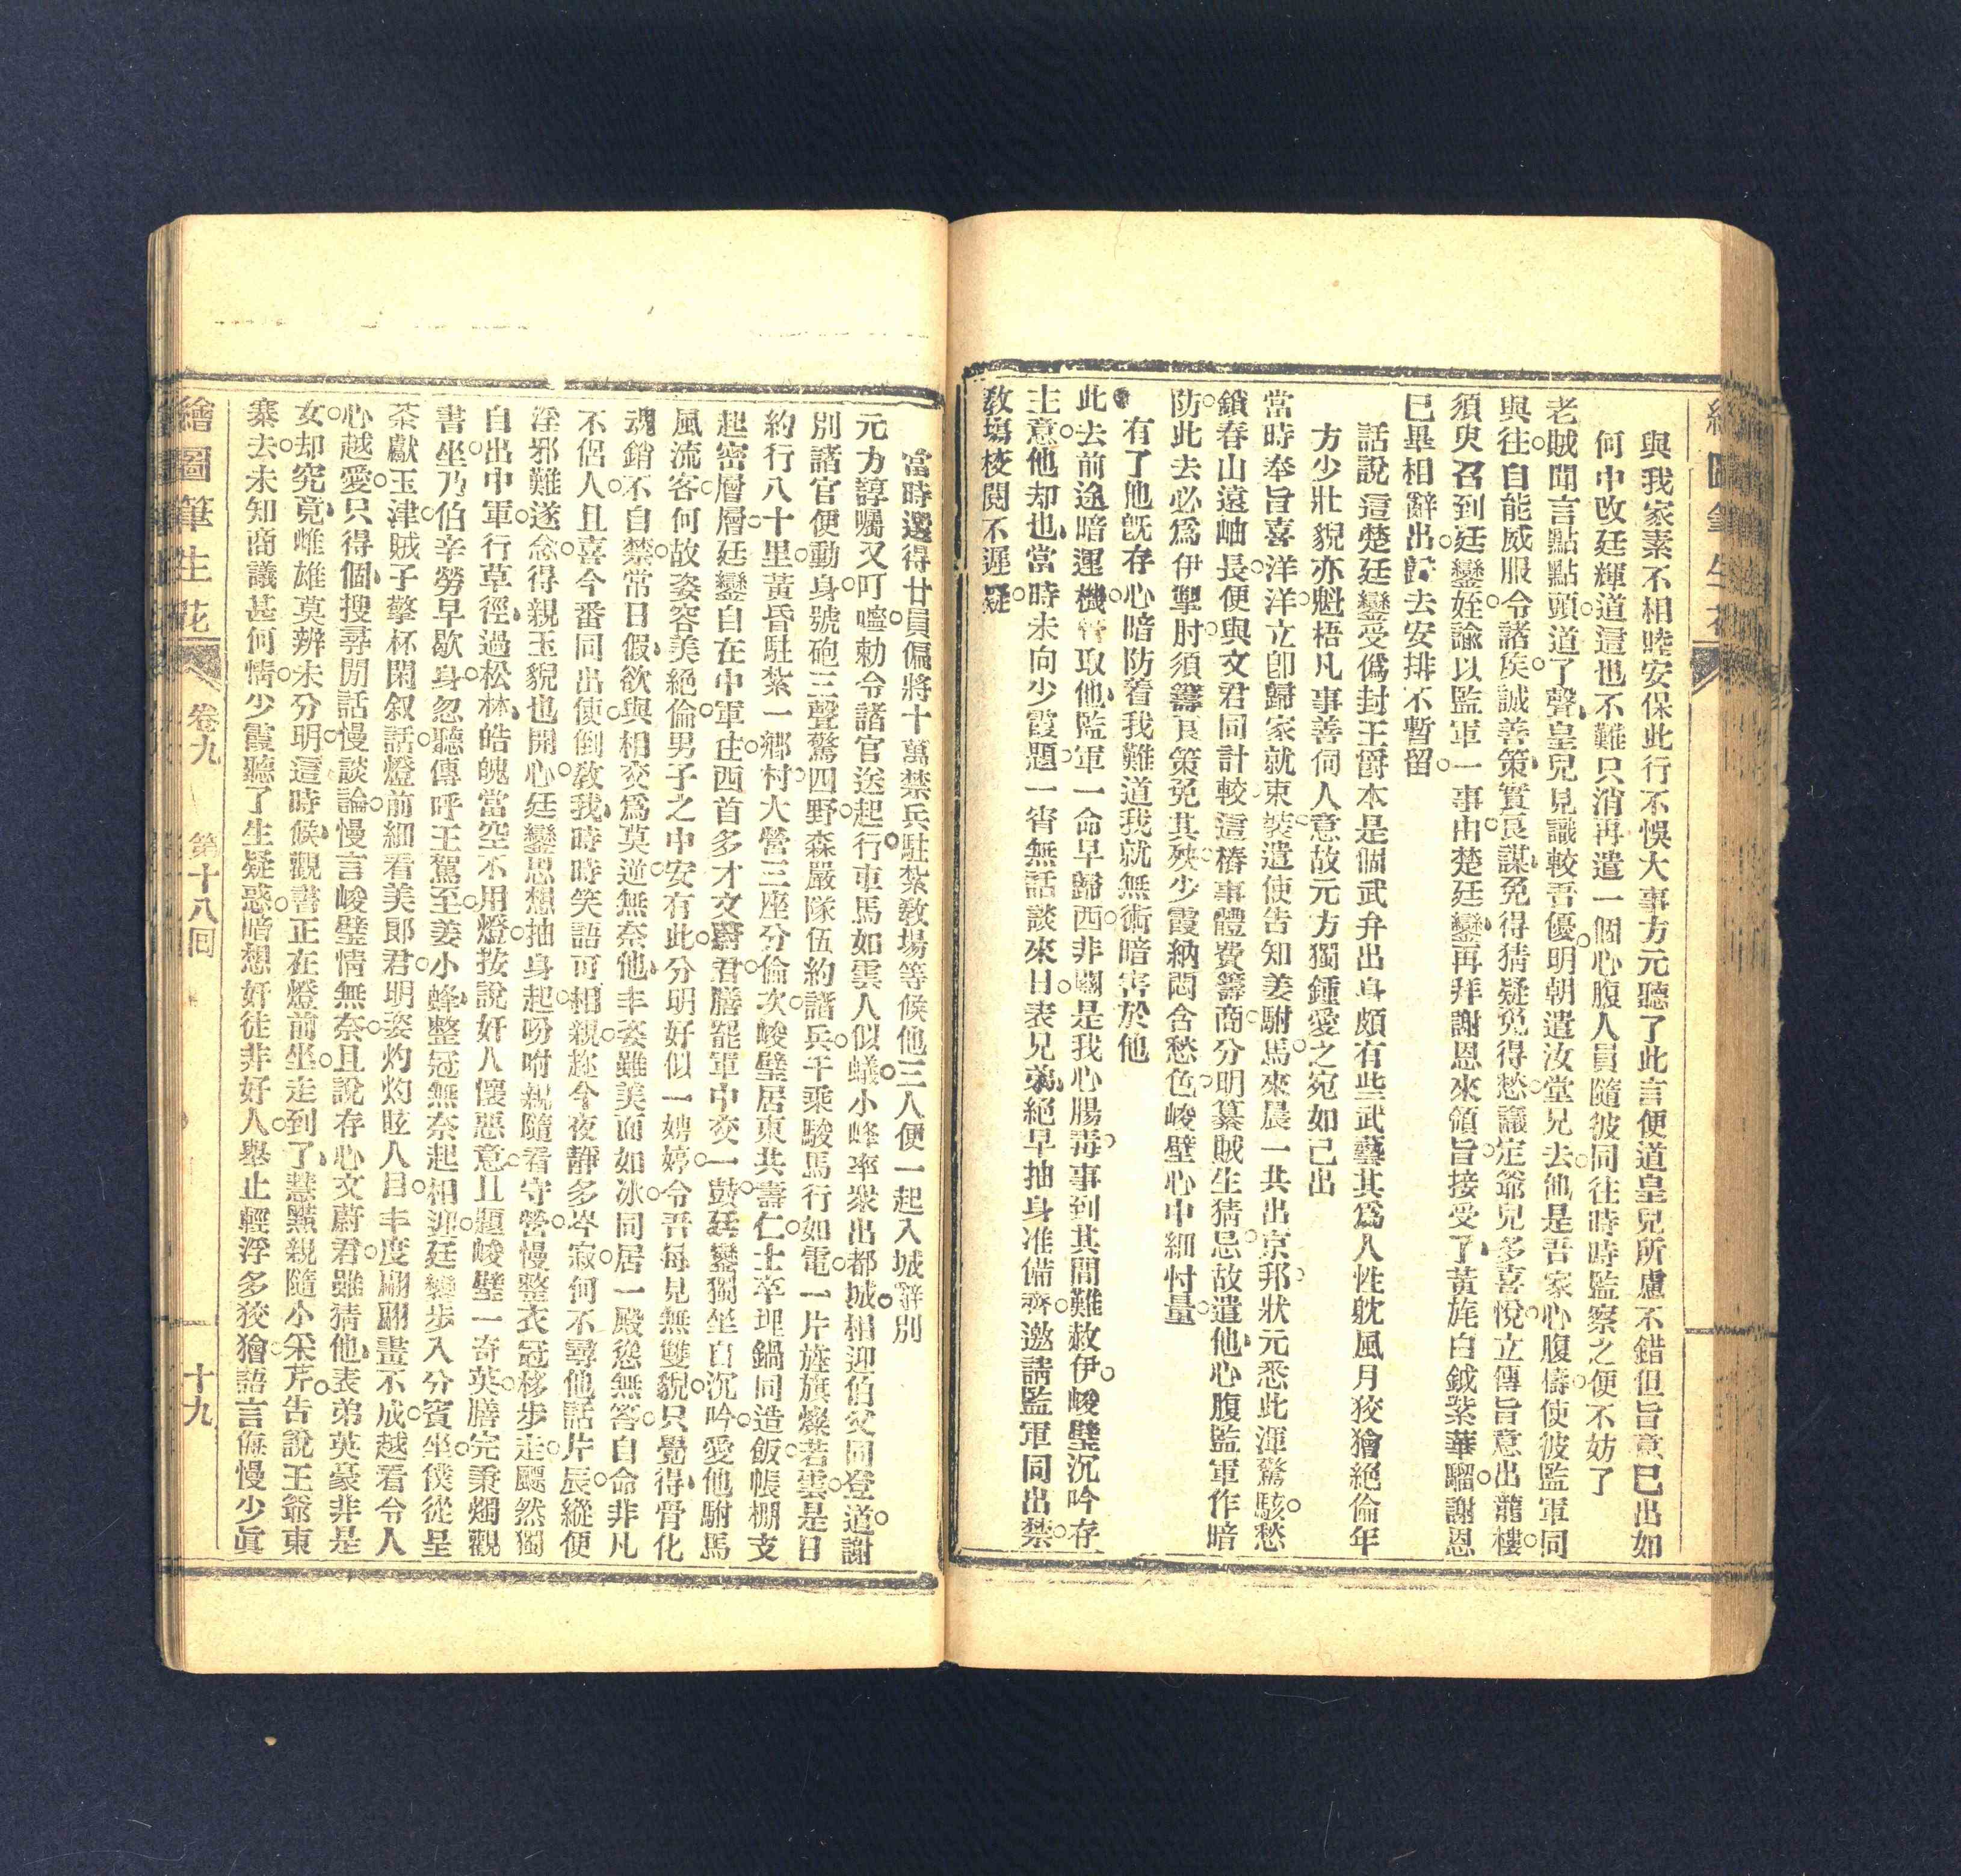 與我家素不相睦安保此行不悞大事方元聽了此言便道皇兒所慮不錯但旨意已出如
何中改廷輝道這也不難只消再遣一個心腹人員隨彼同往時時監察之便不妨了
老賊聞言點點頭道了聲皇兒見識較吾優○明朝遣汝堂兄去○他是吾家心腹儔○使彼監軍同
與往○自能威服令諸侯○誠善策實良謀○免得猜疑免得愁○議定爺兒多喜悅○立傳旨意出龍樓○
須臾召到廷鑾姪○諭以監軍一事由○楚廷鑾再拜謝恩來領旨○接受了黃旄白鉞紫華騮○謝恩
已畢相辭出○歸去安排不暫留○
話說這楚廷鑾受僞封王爵本是個武弁出身頗有些武藝其爲人性躭風月狡獪絕倫年
方少壯貌亦魁梧凡事善伺人意故元方獨鍾愛之宛如己出
當時奉旨喜洋洋○立卽歸家就束裝○遣使告知姜駙馬○來晨一共出京邦○狀元悉此渾驚駭○愁
鎖春山遠岫長○便與文君同計較○這樁事體費籌商○分明纂賊生猜忌○故遣他心腹監軍作暗
防○此去必爲伊掣肘○須籌良策免其殃○少霞納悶含愁色○峻壁心中細忖量○
有了他旣存心暗防着我難道我就無術暗害於他
此去前途暗運機○管取他監軍一命早歸西○非關是我心腸毒○事到其間難赦伊○峻璧沉吟存
主意○他却也當時未向少霞題○一宵無話談來日○表兄弟絕早抽身准備齊○邀請監軍同出禁○
敎塲校閱不遲疑○
當時選得廿員偏將十萬禁兵駐紮敎場等候他三人便一起入城辭別
元方諄囑又叮嚀○勅令諸官送起行○車馬如雲人似蟻○小峰率衆出都城○相迎伯父同登道○謝
別諸官便動身○號砲三聲驚四野○森嚴隊伍約諸兵○千乘駿馬行如電○一片旌旗燦若雲○是日
約行八十里○黃昏駐紮一鄉村○大營三座分倫次○峻璧居東共壽仁○士卒埋鍋同造飯○帳棚支
起密層層○廷鑾自在中軍庄○西首多才文蔚君○膳罷軍中交一鼓○廷鑾獨坐自沉吟○愛他駙馬
風流客○何故姿容美絕倫○男子之中安有此○分明好似一娉婷○令吾每見無雙貌○只覺得骨化
魂銷不自禁○常日假欲與相交爲莫逆○無奈他丰姿雖美面如冰○同居一殿慫無答○自命非凡
不侶人○且喜今番同出使○倒敎我時時笑語可相親○趂今夜靜多岑寂○何不尋他話片辰○縱便
淫邪難遂念○得親玉貌也開心○廷鑾思想抽身起○吩咐親隨看守營○慢整衣冠移步走○颺然獨
自出中軍○行草徑過松林○皓魄當空不用燈○按說奸人懷惡意○且題峻璧一奇英○膳完秉燭觀
書坐○乃伯辛勞早歇身○忽聽傳呼王駕至○姜小蜂整冠無奈起相迎○廷鑾步入分賓坐○僕從呈
茶獻玉津○賊子擎杯閑叙話○燈前細看美郎君○明姿灼灼眩人目○丰度翩翩畫不成○越看令人
心越愛○只得個搜尋閒話慢談論○慢言峻璧情無奈○且說存心文蔚君○雖猜他表弟英豪非是
女○却究竟雌雄莫辨未分明○這時候觀書正在燈前坐○走到了慧黠親隨小采芹○告說王爺東
寨去○未知商議甚何情○少霞聽了生疑惑○暗想奸徒非好人○舉止輕浮多狡獪○語言侮慢少眞
繪圖筆生花　卷九　第十八回　十九